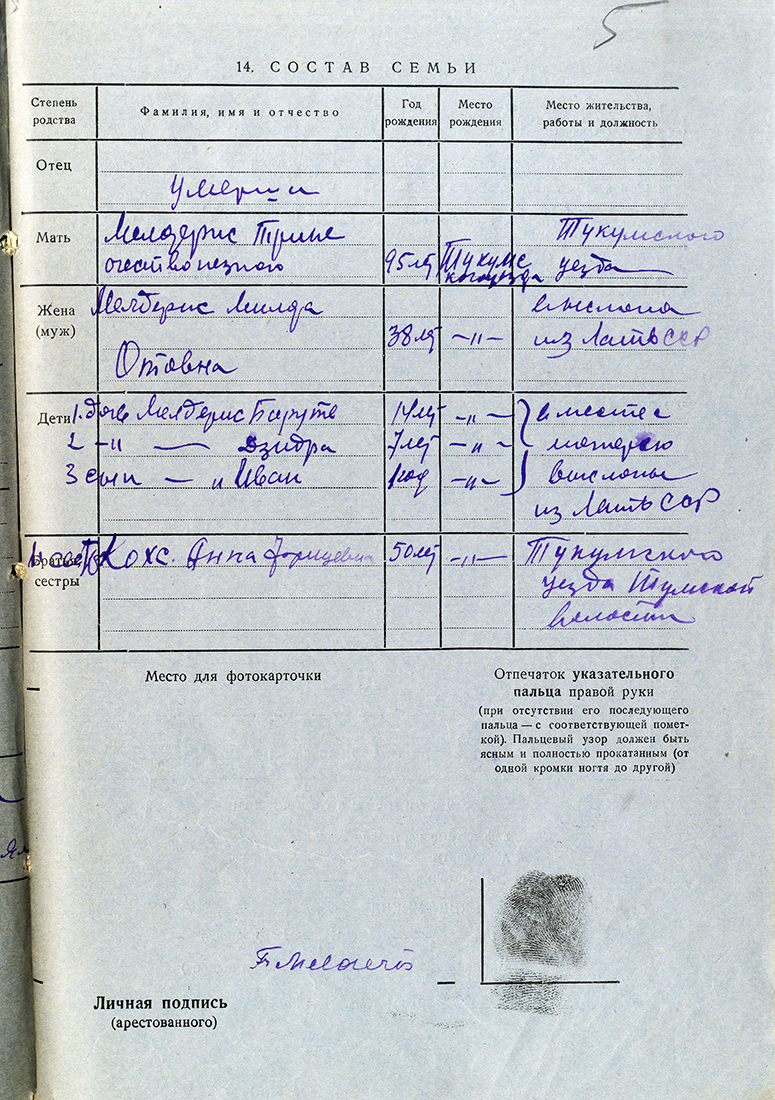 5
14. СОСТАВ СЕМЬИ
Степень родства
Фамилия, имя и отчество
Год рождения
Место рождения
Место жительства, работы и должность
Отец
умерши
Мать
Мелдерис Трине
95 лет
Тукумс
Тукумского
уезда
Жена (муж)
Мелдерис Милда
Отовна
38 лет
—〃—
выслана
из Латв ССР
Дети
1. дочь Мелдерис Бирута
14 лет
—〃—
вместе с
2 —〃— Дзидра
7 лет
—〃—
матерью
3 сын —〃 Иван
1 год
—〃—
высланы
из Латв ССР
Братья, сестры
Кохс. Анна
50 лет
—〃—
Тукумского
уезда Тумской
волости
Место для фотокарточки
Отпечаток указательного
пальца правой руки
(при отсутствии его последующего
пальца — с соответствующей помет-
кой). Пальцевый узор должен быть
ясным и полностью прокатанным (от
одной кромки ногтя до другой)
Личная подпись
(арестованного)